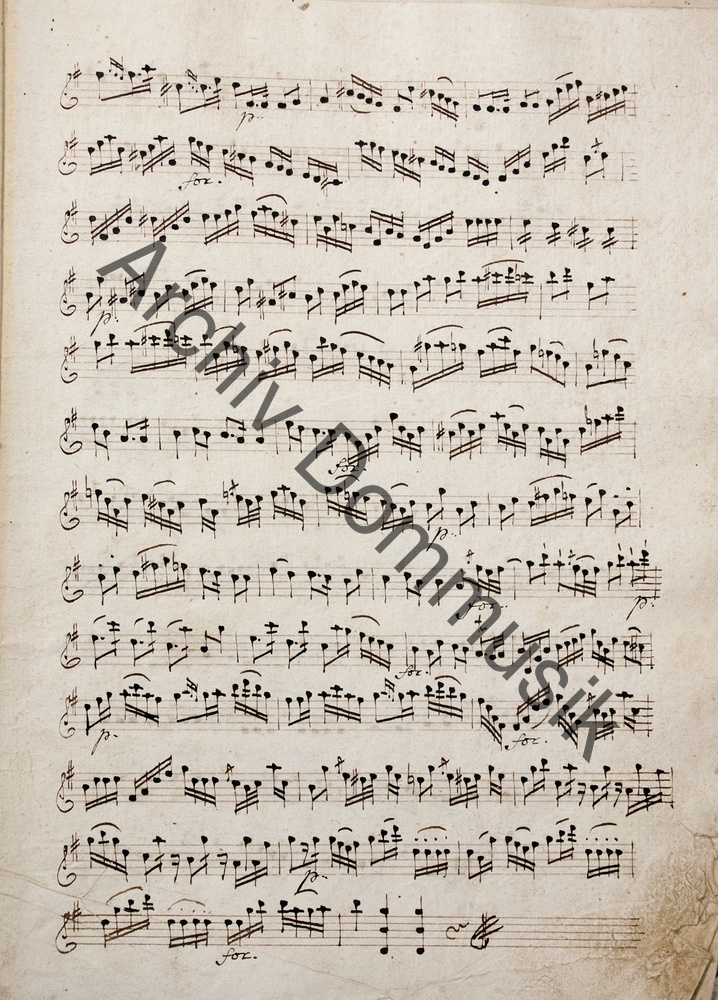 p.
for.
p.
for.
p.
for.
p.
for.
p.
for.
p.
for.
p.
for.
Archiv Dommusik